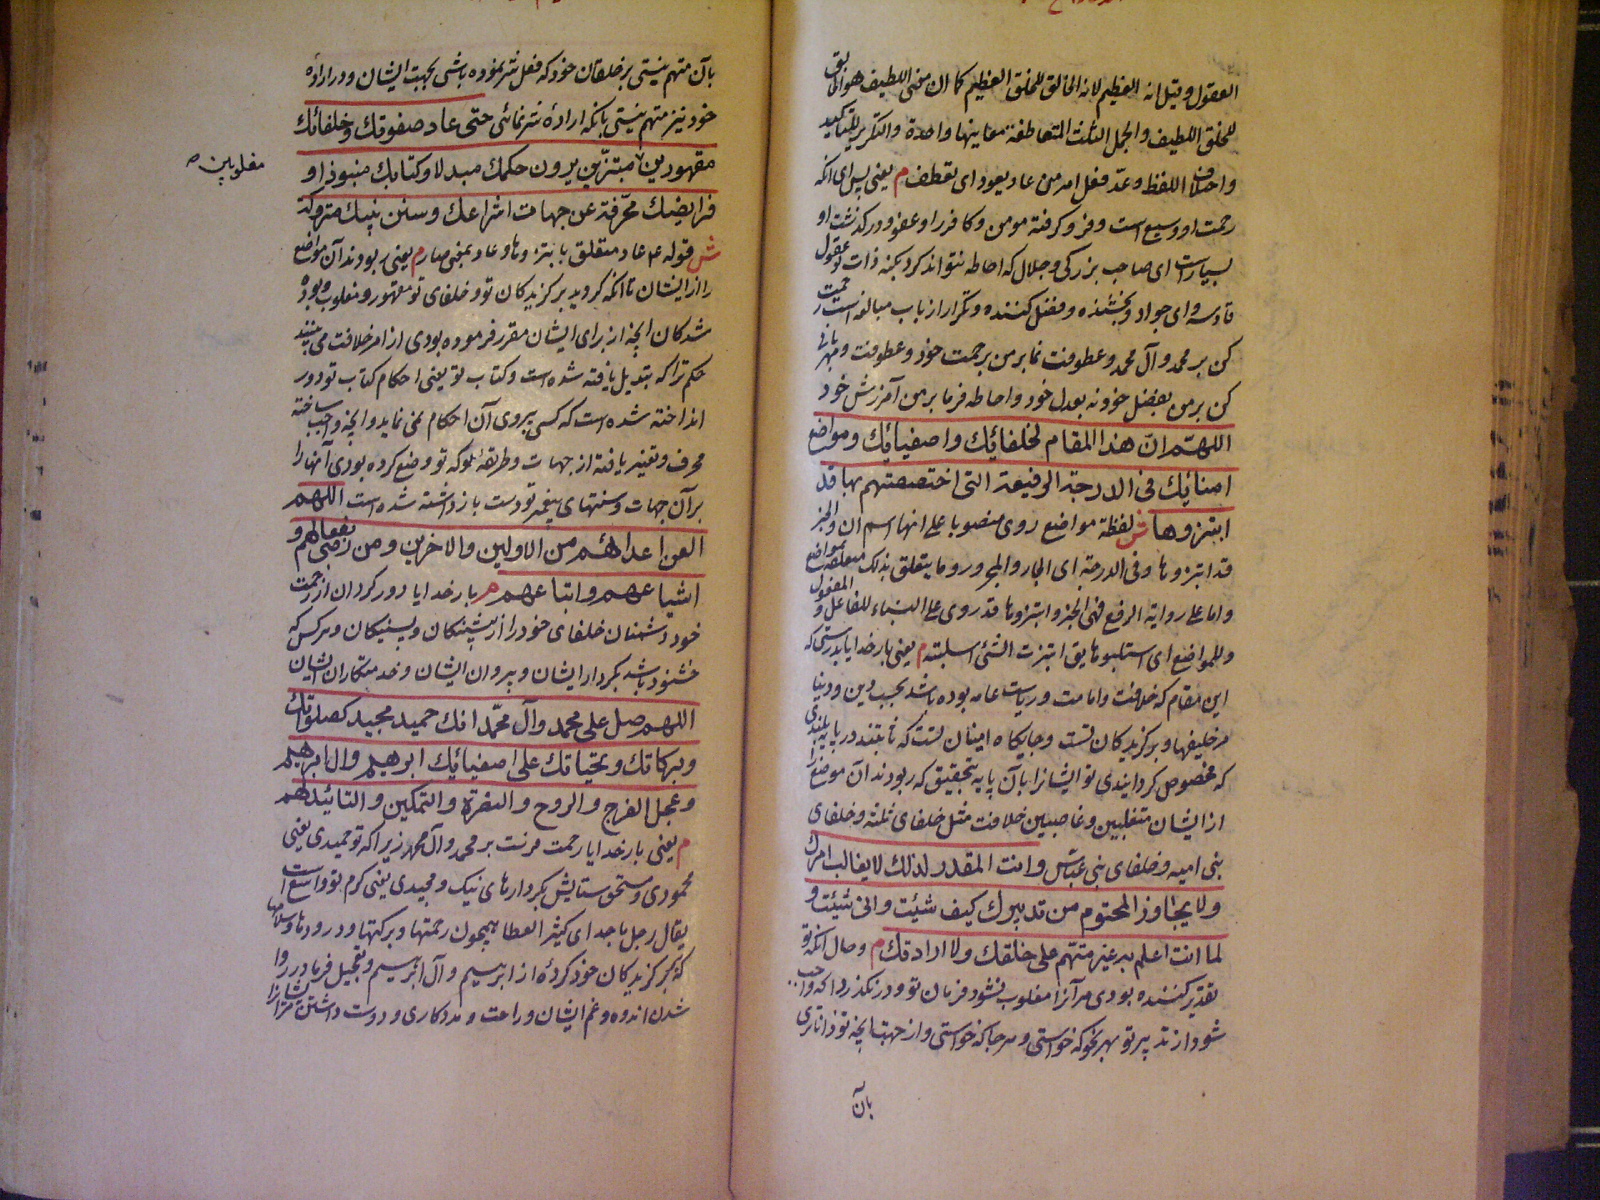 العقول وقيل انه العظيم لانه الخالق للخلق العظيم كما ان معنى اللطيف هو الخالق
للخلق اللطيف والجمل الثلث المتعاطفة معانيها واحدة والتكرير للتاكيد
واختلاف اللفظ وعد فعل امر من عاد يعود اى تعطف م يعنى پس اى انكه
رحمت او وسيع است وفرو گرفته مومن وكافر را وعفو ودر گذشت او
بسيار است اى صاحب بزرگى وجلال كه احاطه نتواند كرد بكنه ذات تو عقول
واى جواد وبخشنده وفضل كننده وتكرار از باب مبالغه است رحمت
كن بر محمد وآل محمد وعطوفت نما بر من برحمت خود وعطوفت ومهربانى
كن بر من بفضل خود نه بعدل خود واحاطه فرما بر من آمرزش خود
اللهم ان هذا المقام لخلفائك واصفيائك ومواضع
امنائك فى الدرجة الرفيعة التى اختصصتهم بها قد
ابتزوها ش لفظة مواضع روى منصوبا على انها اسم ان والخبر
قد ابتزوها وفى الدرجة اى الجار والمجرور وما يتعلق بذلك متعلقه بمواضع
واما على رواية الرفع فهى الخبر وابتزوها قد روى على البناء للفاعل وللمفعول
وللمواضع اى استلبوها يق ابتززت الشئ استلبته م يعنى بار خدايا بدرستى كه
اين مقام كه خلافت وامامت ورياست عامه بوده باشد بحسب دين ودنيا
مر خليفها وبرگزيدگان تست وجايگاه امينان تست كه ثابتند در پايه بلندى
كه مخصوص گردانيدى تو ايشانرا بآن پايه بتحقيق كه ربودند آن موضع را
از ايشان متغلبين وغاصبين خلافت مثل خلفاى ثلثه وخلفاى
بنى اميه وخلفاى بنى عباس وانت المقدر لذلك لا يغالب امرك
ولا يجاوز المحتوم من تدبيرك كيف شئت وانى شئت و
لما انت اعلم به غير متهم على خلقك ولا ارادتك م وحال انكه تو
تقدير كننده بودى مر آنرا مغلوب نشود فرمان تو ودر نگذرد انكه واجب
شود از تدبير تو بهر نحو كه خواستى وهر جا كه خواستى واز جهت انچه تو داناترى
بآن
بآن متهم نيستى بر خلقان خود كه فعل شر نموده باشى بجهت ايشان ودر اراده
خود نيز متهم نيستى بانكه اراده شر نمائى حتى عاد صفوتك وخلفائك
مقهورين مبتزين يرون حكمك مبدلا وكتابك منبوذا و
مغلوبين
فرايضك محرفة عن جهات اشراعك وسنن نبيك متروكة
ش قوله ع عاد متعلق بابتزوها وعاد بمعنى صار م يعنى ربودند آن مواضع
را از ايشان تا انكه گرديد برگزيدگان تو وخلفاى تو مقهور ومغلوب وربوده
شدگان انچه از براى ايشان مقرر فرموده بودى از امر خلافت مى بينند
حكم ترا كه تبديل يافته شده است وكتاب تو يعنى احكام كتاب تو دور
انداخته شده است كه كسى پيروى آن احكام نمى نمايد وانچه واجب ساخته
محرف وتغيير يافته از جهات وطريقه سلوكه تو وضع كرده بودى آنها را
بر آن جهات وسنتهاى پيغمبر تو دست باز داشته شده است اللهم
العن اعدائهم من الاولين والاخرين ومن رضى بفعالهم و
اشياعهم واتباعهم م بار خدايا دور گردان از رحمت
خود دشمنان خلفاى خود را از پيشينگان وپسينگان وهر كس كه
خشنود باشد بكردار ايشان وپيروان ايشان وخدمتكاران ايشان
اللهم صل على محمد وآل محمد انك حميد مجيد كصلواتك
وبركاتك وتحياتك على اصفيائك ابرهيم وال ابرهيم
وعجل الفرج والروح والنصرة والتمكين والتائيد لهم
م يعنى بار خدايا رحمت فرست بر محمد وآل محمد زيرا كه تو حميدى يعنى
محمودى ومستحق ستايش بكردارهاى نيك ومجيدى يعنى كرم تو واسع است
يقال رجل ماجد اى كثير العطا همچون رحمتها وبركتها ودرودها وسلامها
كه بر برگزيدگان خود كردهٔ از ابرهيم وآل ابرهيم وتعجيل فرما در روا
شدن اندوه وغم ايشان وراحت ومددكارى ودوست داشتن